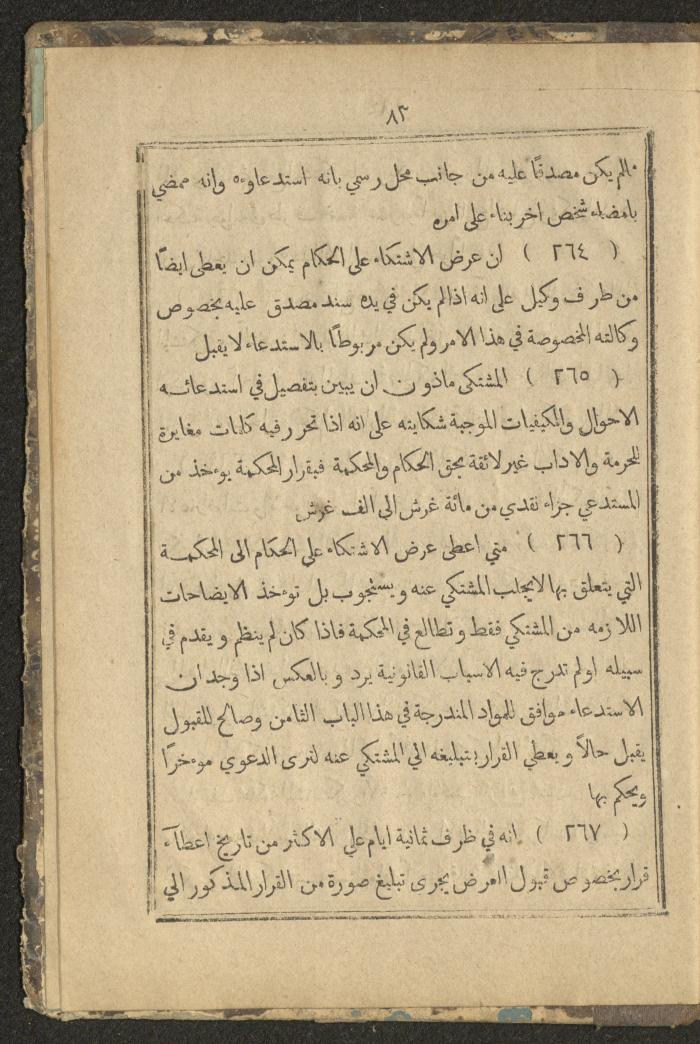 ٨٣
مالم يكن مصدقًا عليه من جانب محل رسمي بانه استدعاوءه وانه ممضي
بامضاء شخص اخر بناء على امره
( ٢٦٤ ) ان عرض الاشتكاء على الحكام يمكن ان يعطى ايضًا
من طرف وكيل على انه اذا لم يكن في يده سند مصدق عليه بخصوص
وكالته المخصوصة في هذا الامر ولم يكن مربوطًا بالاستدعاء لا يقبل
( ٢٦٥ ) المشتكى ماذون ان يبين بتفصيل في استدعائه
الاحوال والكيفيات الموجبة شكايته على انه اذا تحرر فيه كلمات مغايرة
للحرمة والاداب غير لائقة بحق الحكام والمحكمة فبقرار المحكمة يوءخذ من
المستدعي جزاء نقدي من مائة غرش الى الف غرش
( ٢٦٦ ) متي اعطى عرض الاشتكاء على الحكام الى المحكمة
التي يتعلق بها لا يجلب المشتكي عنه ويستجوب بل توءخذ الايضاحات
اللازمه من المشتكي فقط وتطالع في المحكمة فاذا كان لم ينظم ويقدم في
سبيله او لم تدرج فيه الاسباب القانونية يرد وبالعكس اذا وجد ان
الاستدعاء موافق للمواد المندرجة في هذا الباب الثامن وصالح للقبول
يقبل حالاً ويعطي القرار بتبليغه الي المشتكي عنه لترى الدعوي موءخرًا
ويحكم بها
( ٢٦٧ ) انه في ظرف ثمانية ايام علي الاكثر من تاريخ اعطآء
قرار بخصوص قبول العرض يجرى تبليغ صورة من القرار المذكور الي